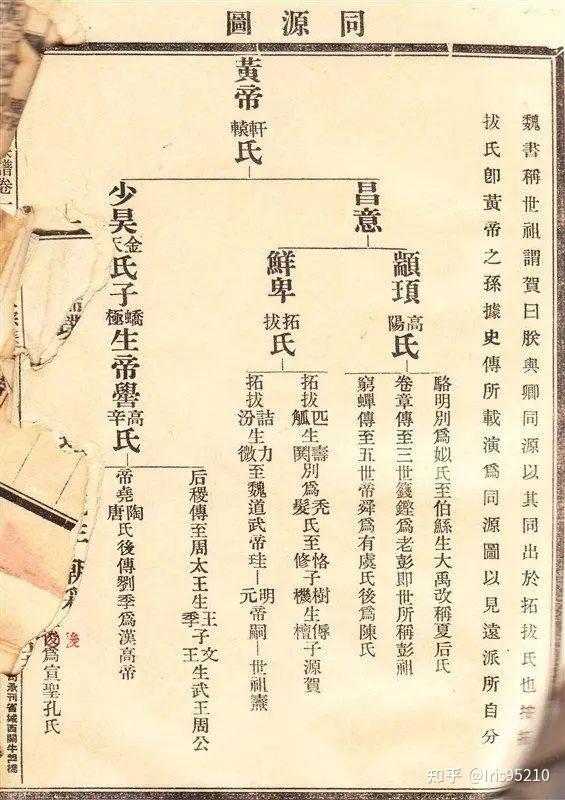 同源圖
魏書稱世祖謂賀曰朕與卿同源以其同出於拓拔氏也按拓
拔氏即黃帝之孫據史傳所載演為同源圖以見遠派所自分
黃帝軒轅氏
昌意
顓頊高陽氏
駱明別為姒氏至伯鯀生大禹改稱夏后氏
卷章傳至三世籛鏗為老彭即世所稱彭祖
窮蟬傳至五世帝舜為有虞氏後為陳氏
鮮卑拓拔氏
拓拔匹觚生壽闐別為禿髮氏至恪修子樹機生傉檀子源賀
拓拔詰汾生力微至魏道武帝珪—明元帝嗣—世祖燾
少昊金天氏子蟜極生帝嚳高辛氏
后稷傳至周太王生王季子文王生武王周公
帝堯陶唐氏後傳劉季為漢高帝
後
後為宣聖孔氏
譜卷一
承刊省城西關牛乸橋
知乎 @Iris95210